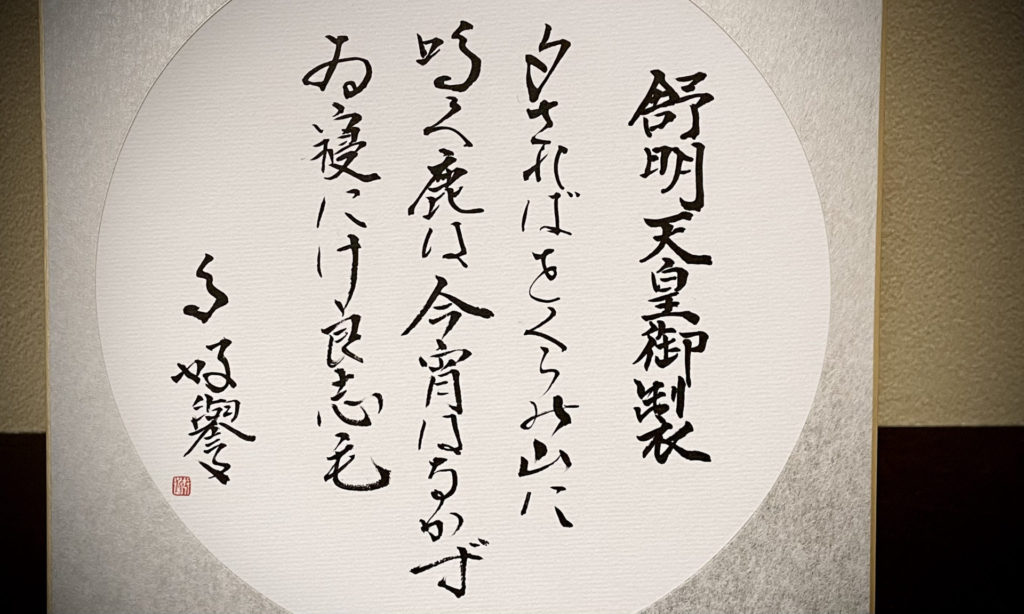 舒明天皇御製
夕さればをくらの山に
鳴く鹿は今宵はなかず
ゐ寝にけ良志毛